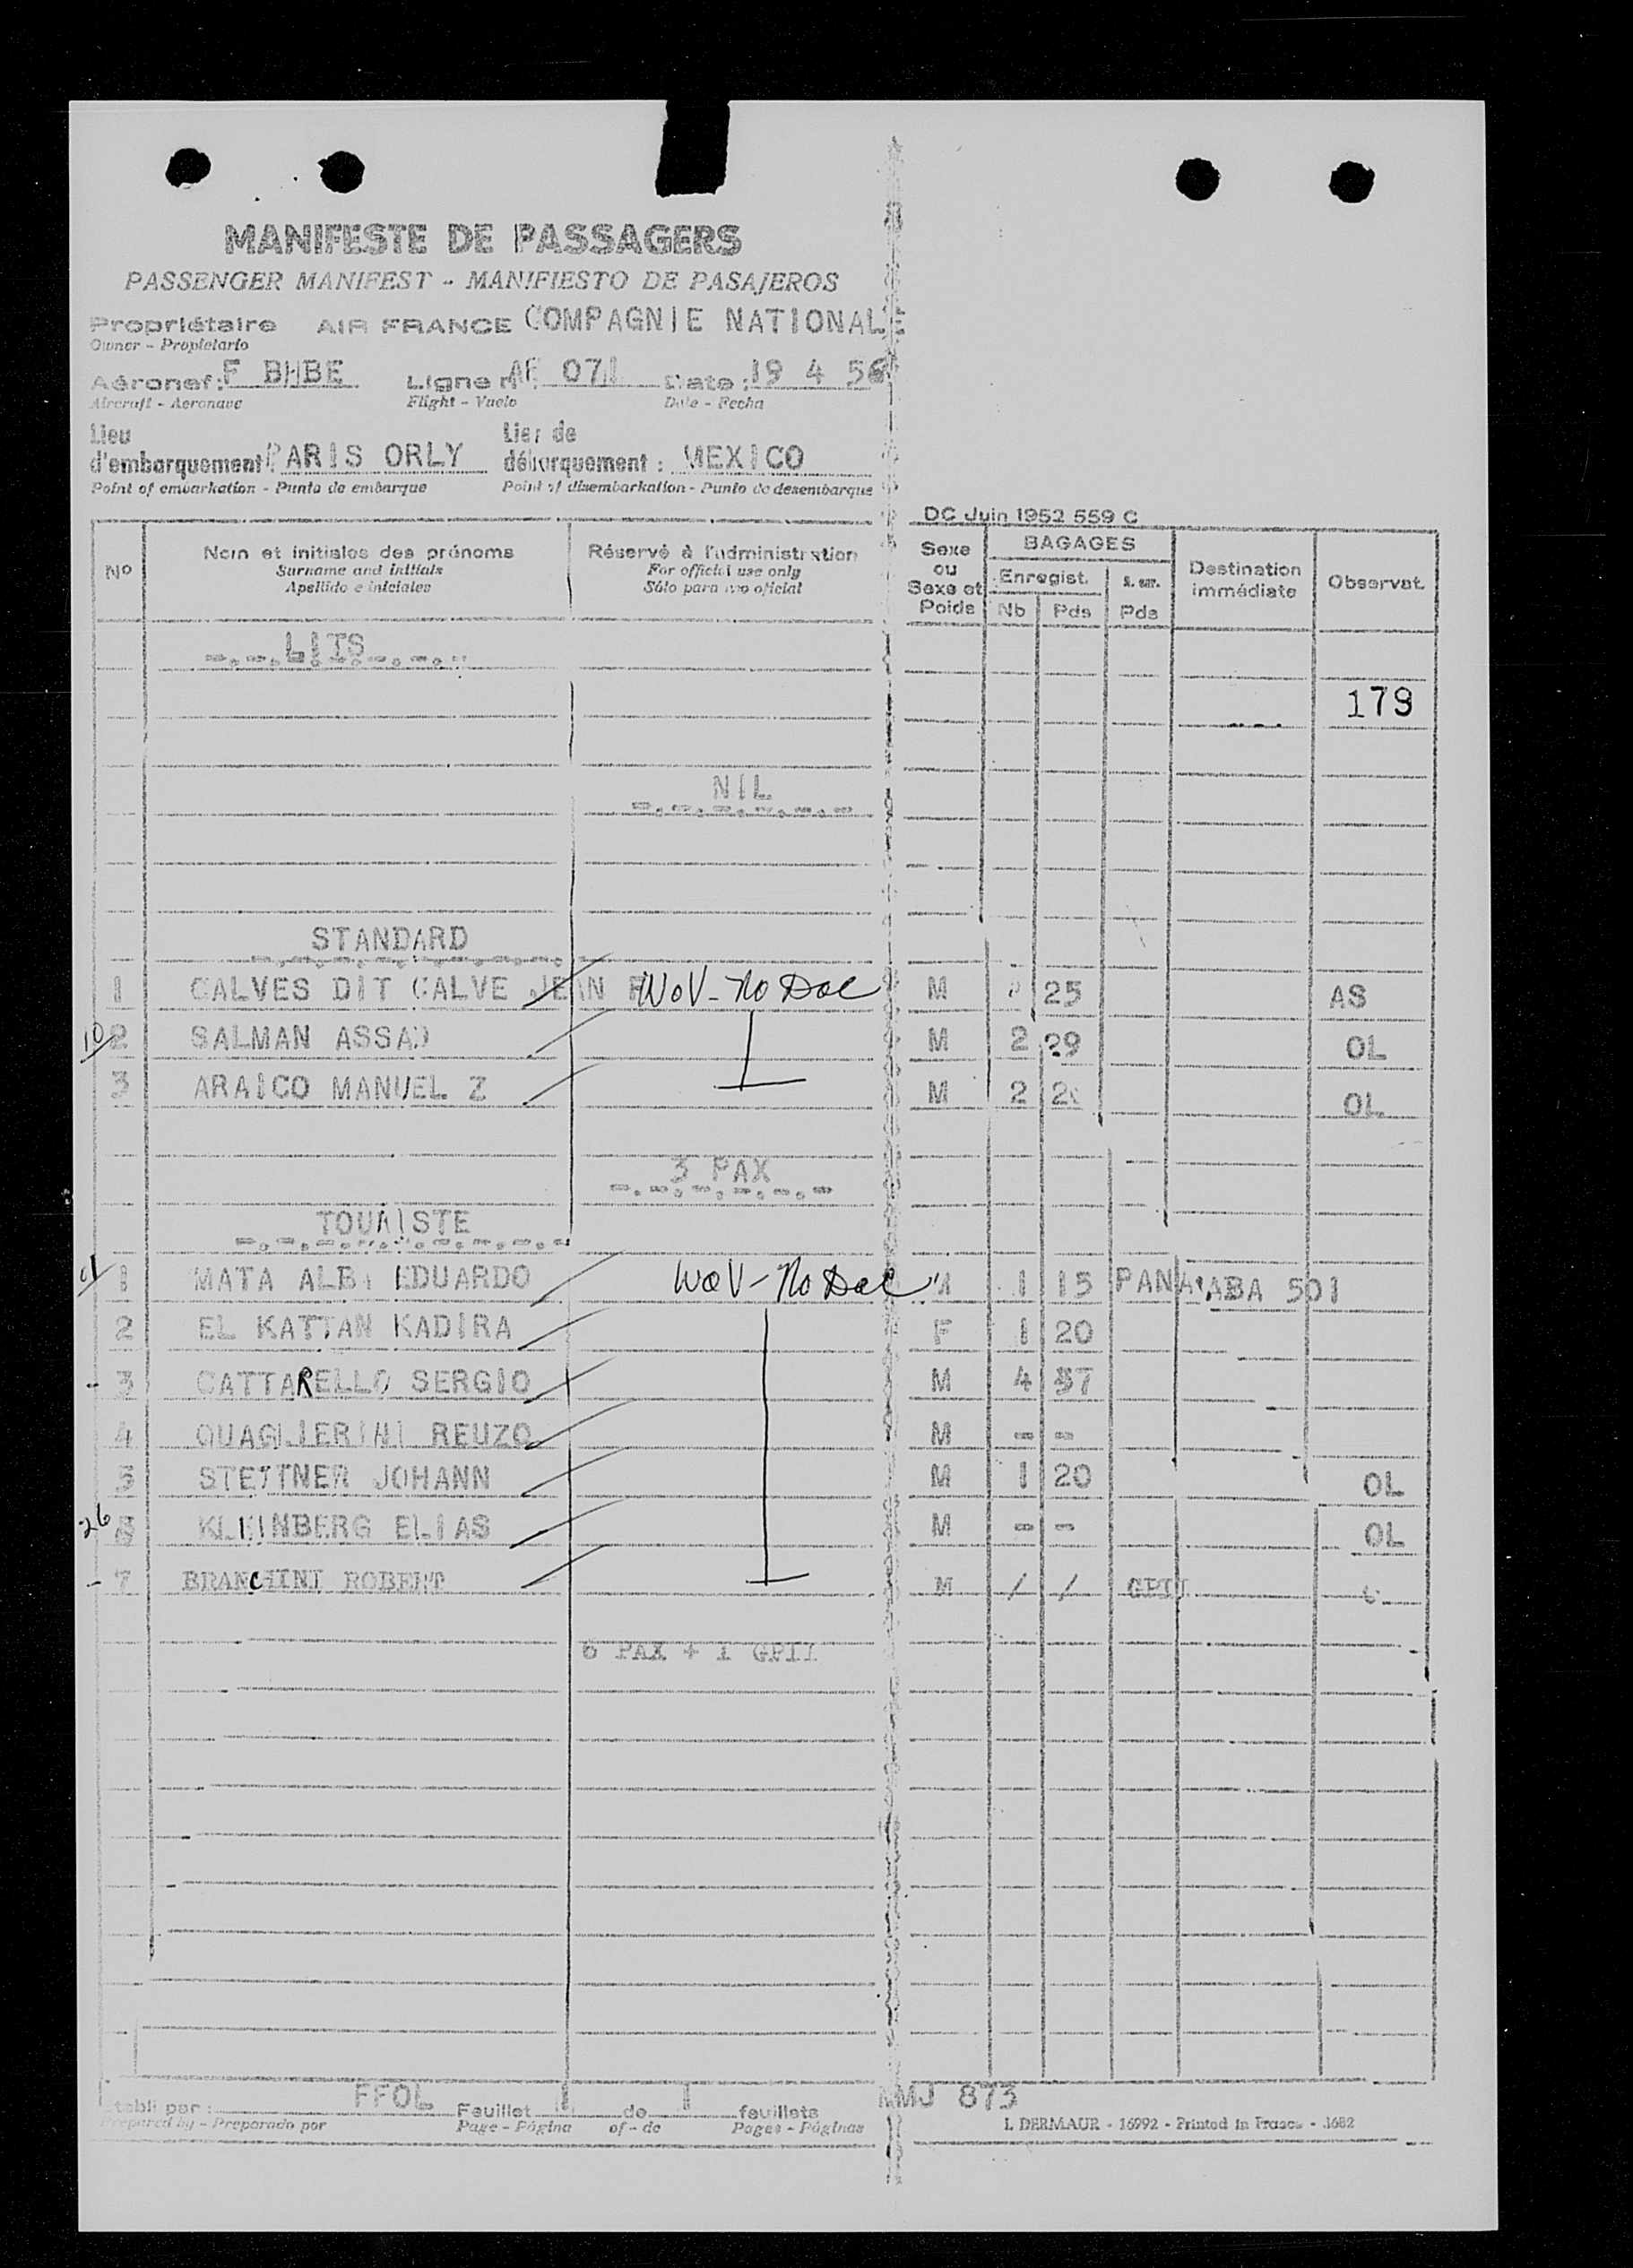 MANIFESTE DE PASSAGERS
PASSENGER MANIFEST - MANIFIESTO DE PASAJEROS
Propriétaire AIR FRANCE COMPAGNIE NATIONALE
Owner - Propietario
Aéronef: F BHBE Ligne n° AF 071 Date: 19 4 56
Aircraft - Aeronave Flight - Vuelo Date - Fecha
Lieu d'embarquement PARIS ORLY Lieu de débarquement : MEXICO
Point of embarkation - Punto de embarque Point of disembarkation - Punto de desembarque
DC Juin 1952 559 C
No Nom et initiales des prénoms Réservé à l'administration Sexe ou Sexe et Poids BAGAGES Destination immédiate Observat.
Surname and initials For official use only Enregist.
Apellido e iniciales Sólo para uso oficial Nb Pds Pds
LITS
179
NIL
STANDARD
1 CALVES DIT CALVE JEAN WoV - No Doc M 25 AS
10 2 SALMAN ASSAD M 2 29 OL
3 ARAICO MANUEL Z M 2 OL
3 PAX
TOURISTE
1 MATA EDUARDO WoV - No Doc M 1 15 501
2 EL KATTAN KADIRA F 1 20
- 3 CATTARELLO SERGIO M 4
4 QUAGLIERINI REUZO M - -
5 STETTNER JOHANN M 1 20 OL
26 6 KLEINBERG ELIAS M - - OL
- 7 BRANCHINI ROBERT M / / GPII
6 PAX + 1 GPII
Etabli par : FFOL Feuillet 1 de 1 feuillets MMJ 873
Prepared by - Preparado por Page - Página of - de Pages - Páginas L DERMAUR - 16992 - Printed in France - 1682